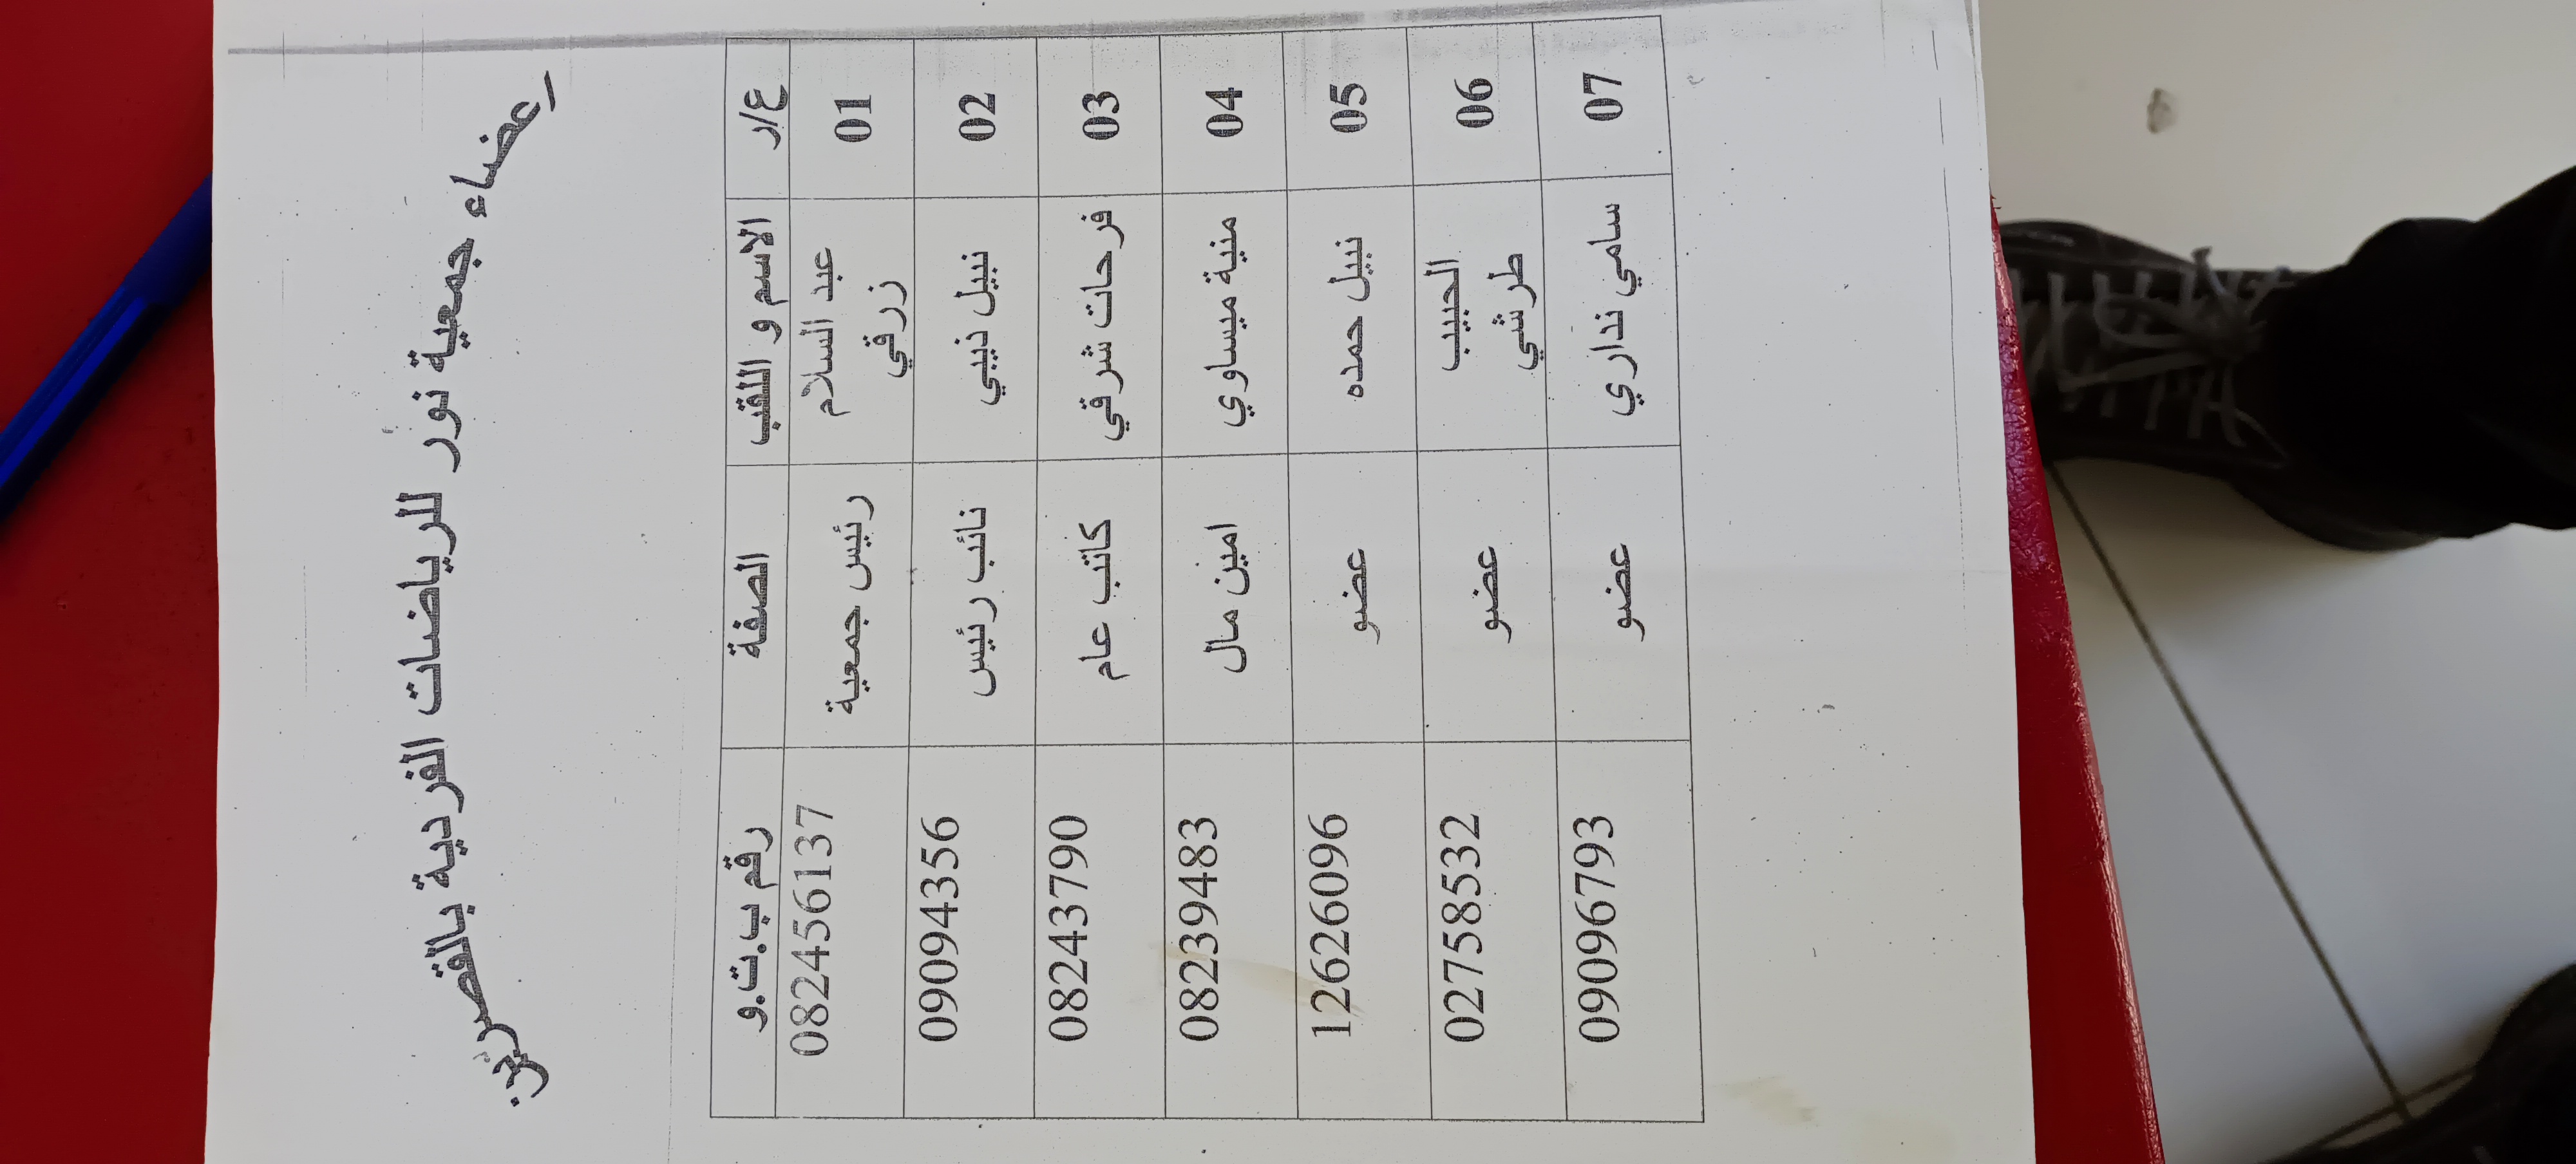 اعضاء جمعية نور للرياضات الفردية بالقصرين:
ع/ر الاسم و اللقب الصفة رقم ب.ت.و
01 عبد السلام زرقي رئيس جمعية 082456137
02 نبيل ذيبي نائب رئيس 09094356
03 فرحات شرقي كاتب عام 08243790
04 منية ميساوي امين مال 08239483
05 نبيل حمده عضو 12626096
06 الحبيب طرشي عضو 02758532
07 سامي نداري عضو 09096793